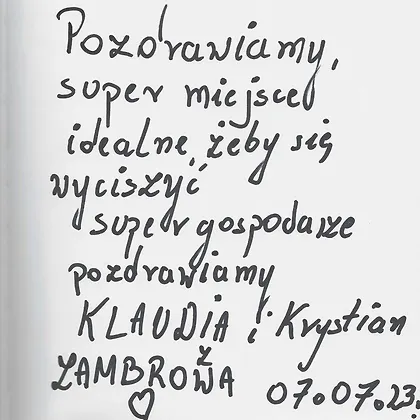 Pozdrawiamy,
super miejsce
idealne, żeby się
wyciszyć
super gospodarze
pozdrawiamy
KLAUDIA i Krystian
Z ZAMBROWA
07.07.23.